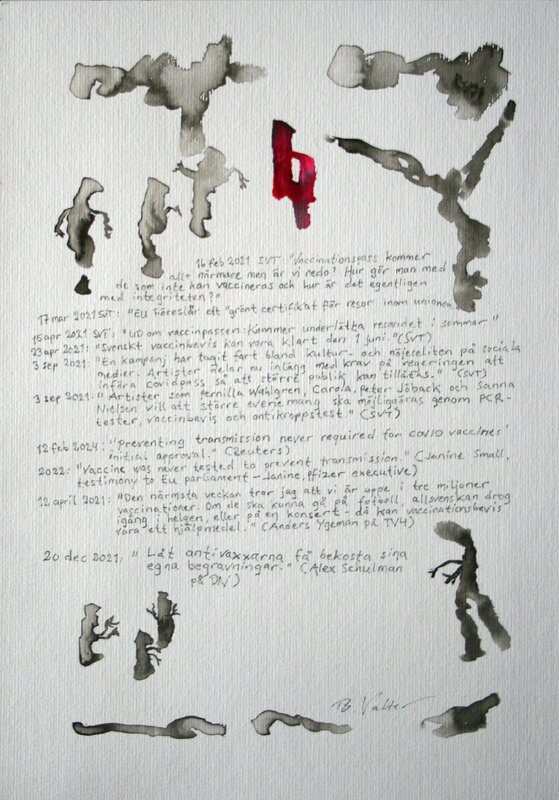 16 feb 2021 SVT: "Vaccinationspass kommer
allt närmare men är vi redo? Hur gör man med
de som inte kan vaccineras och hur är det egentligen
med integriteten?"
17 mar 2021 SVT: "EU föreslår ett "grönt certifikat för resor inom unionen."
15 apr 2021 SVT: "UD om vaccinpassen: Kommer underlätta resandet i sommar"
23 apr 2021: "Svenskt vaccinbevis kan vara klart den 1 juni." (SVT)
3 sep 2021: "En kampanj har tagit fart bland kultur- och nöjeseliten på sociala
medier. Artister delar nu inlägg med krav på regeringen att
införa covidpass så att större publik kan tillåtas." (SVT)
3 sep 2021: "Artister som Pernilla Wahlgren, Carola, Peter Jöback och Sanna
Nielsen vill att större evenemang ska möjliggöras genom PCR-
tester, vaccinbevis och antikroppstest." (SVT)
12 feb 2024: "Preventing transmission never required for COVID vaccines'
initial approval." (Reuters)
2022: "Vaccine was never tested to prevent transmission." (Janine Small,
testimony to EU parliament - Janine, Pfizer executive)
12 april 2021: "Den närmsta veckan tror jag att vi är uppe i tre miljoner
vaccinationer. Om de ska kunna gå på fotboll, allsvenskan drog
igång i helgen, eller på en konsert - då kan vaccinationsbevis
vara ett hjälpmedel." (Anders Ygeman på TV4)
20 dec 2021: "Låt antivaxxarna få bekosta sina
egna begravningar." (Alex Schulman
på DN)
B. Valter